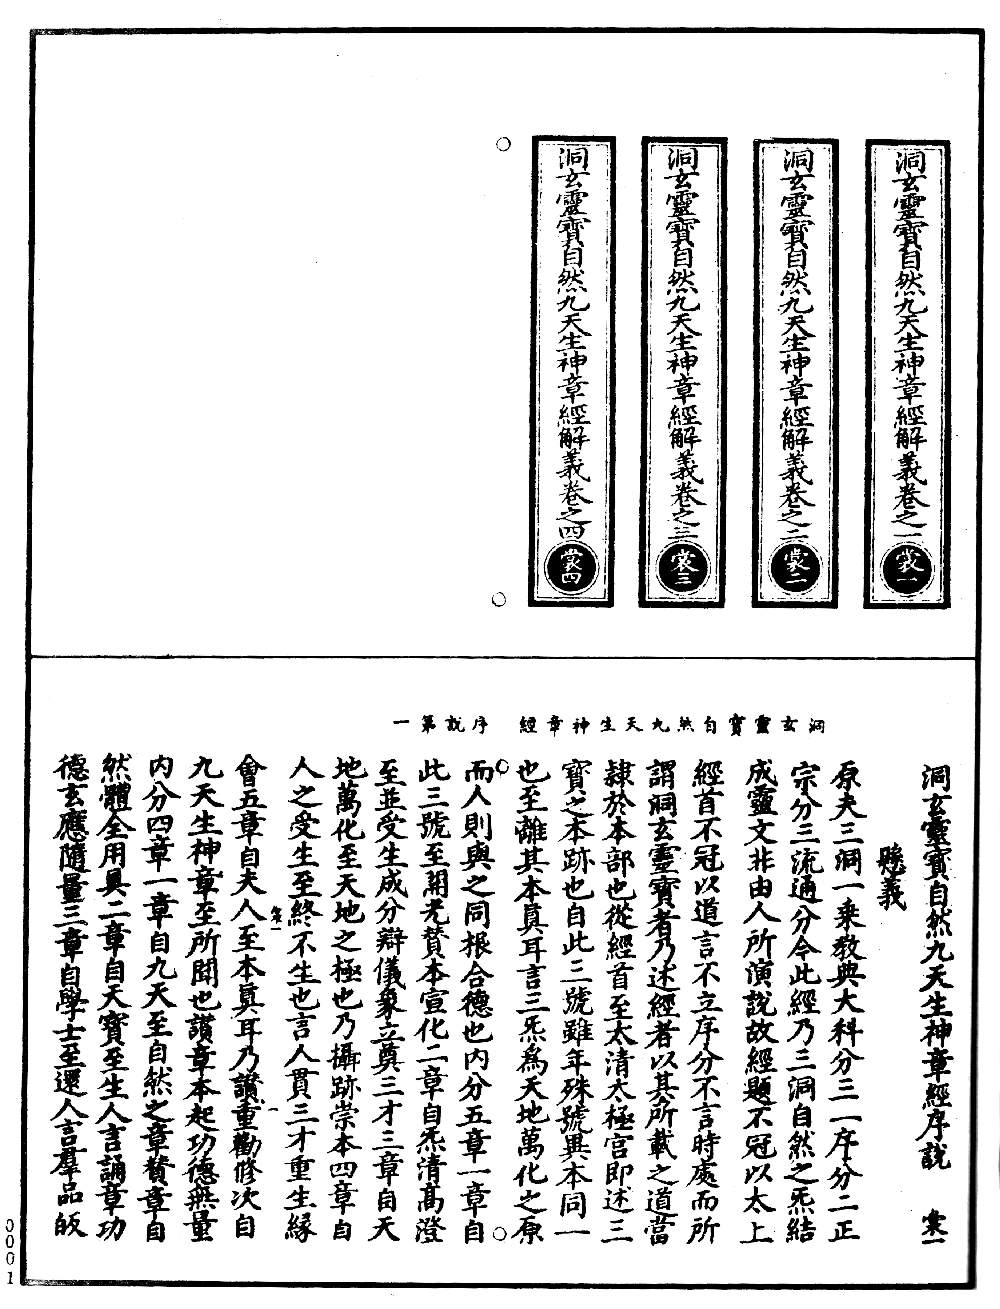 洞玄靈寶自然九天生神章經解義卷之一
裳一
洞玄靈寶自然九天生神章經解義卷之二
裳二
洞玄靈寶自然九天生神章經解義卷之三
裳三
洞玄靈寶自然九天生神章經解義卷之四
裳四
洞玄靈寶自然九天生神章經 序說第一
洞玄靈寶自然九天生神章經序說 裳一
懸義
原夫三洞一乘教典大科分三一序分二正
宗分三流通分今此經乃三洞自然之炁結
成靈文非由人所演說故經題不冠以太上
經首不冠以道言不立序分不言時處而所
謂洞玄靈寶者乃述經者以其所載之道當
隸於本部也從經首至太清太極宮即述三
寶之本跡也自此三號雖年殊號異本同一
也至離其本真耳言三炁爲天地萬化之原
而人則與之同根合德也內分五章一章自
此三號至開光贊本宣化二章自炁清高澄
至並受生成分辯儀象立奠三才三章自天
地萬化至天地之極也乃攝跡崇本四章自
人之受生至終不生也言人貫三才重生緣
會五章自夫人至本真耳乃讚重勸修次自
九天生神章至所聞也讚章本起功德無量
內分四章一章自九天至自然之章贊章自
然體全用具二章自天寶至生人言誦章功
德玄應隨量三章自學士至還人言羣品皈
0001